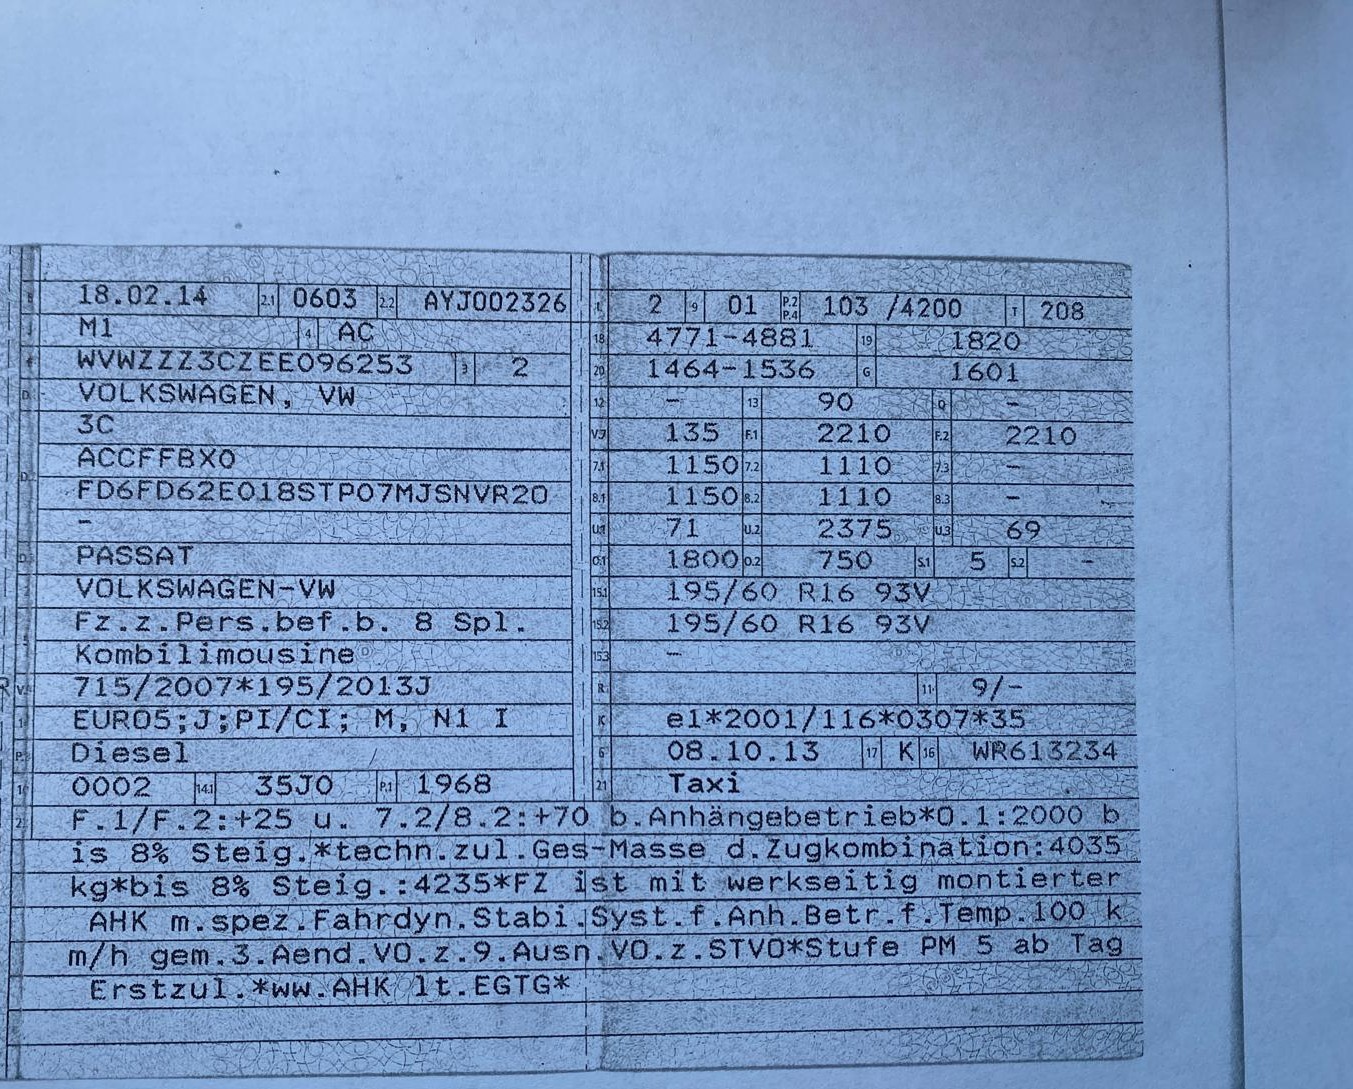 18.02.14 2.1 0603 2.2 AYJ002326
M1 4 AC
WVWZZZ3CZEE096253 3 2
VOLKSWAGEN, VW
3C
ACCFFBX0
FD6FD62E018STP07MJSNVR20
–
PASSAT
VOLKSWAGEN-VW
Fz.z.Pers.bef.b. 8 Spl.
Kombilimousine
715/2007*195/2013J
EURO5;J;PI/CI; M, N1 I
Diesel
0002 14.1 35J0 P.1 1968
2 9 01 P.2 P.4 103 /4200 T 208
18 4771-4881 19 1820
20 1464-1536 G 1601
12 – 13 90 Q –
V.7 135 F.1 2210 F.2 2210
7.1 1150 7.2 1110 7.3 –
8.1 1150 8.2 1110 8.3 –
U.1 71 U.2 2375 U.3 69
O.1 1800 O.2 750 S.1 5 S.2 –
15.1 195/60 R16 93V
15.2 195/60 R16 93V
15.3 –
R 11 9/-
K e1*2001/116*0307*35
6 08.10.13 17 K 16 WR613234
21 Taxi
F.1/F.2:+25 u. 7.2/8.2:+70 b.Anhängebetrieb*O.1:2000 b
is 8% Steig.*techn.zul.Ges-Masse d.Zugkombination:4035
kg*bis 8% Steig.:4235*FZ ist mit werkseitig montierter
AHK m.spez.Fahrdyn.Stabi.Syst.f.Anh.Betr.f.Temp.100 k
m/h gem.3.Aend.VO.z.9.Ausn.VO.z.STVO*Stufe PM 5 ab Tag
Erstzul.*ww.AHK lt.EGTG*